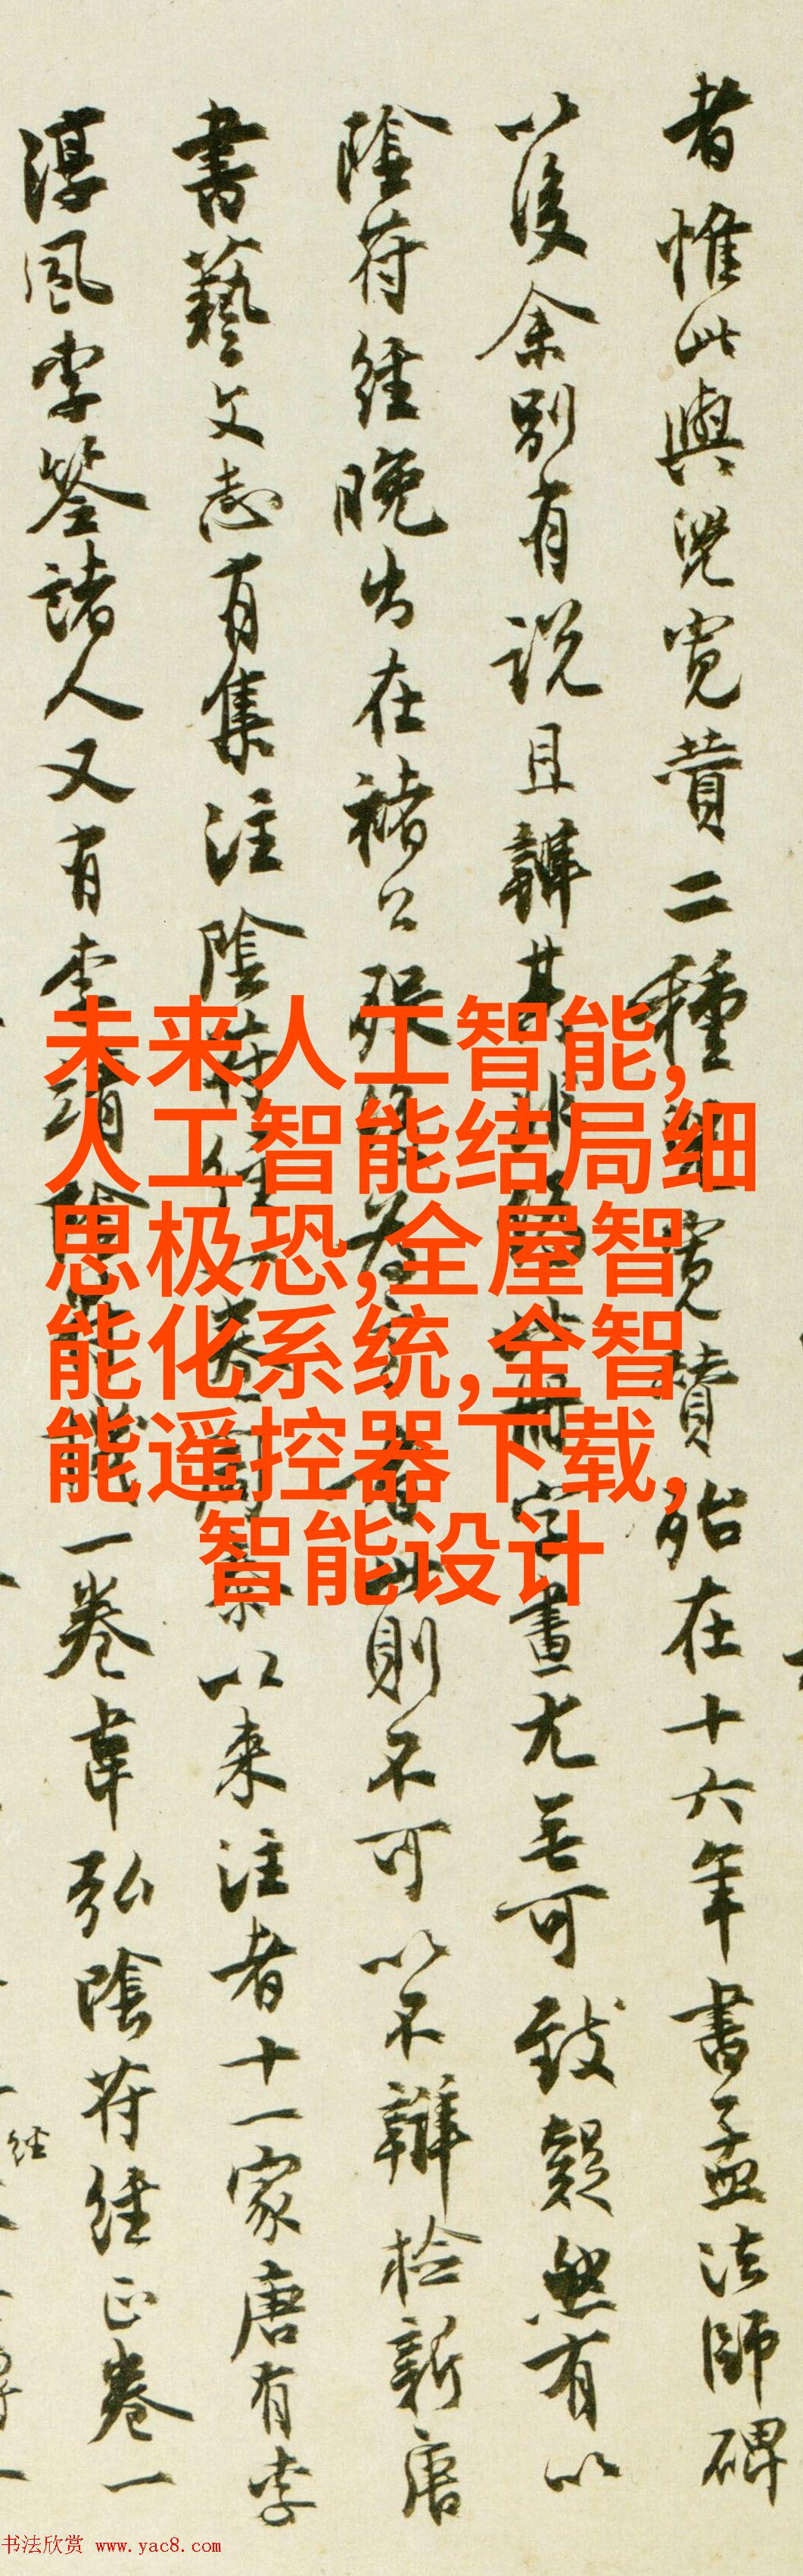 者惟此與兒寬贊二種
寬贊殆在十六年書孟法師碑
以後余別有說且辯其
字畫尤無可致疑然有以
陰符經晚出在褚公
則不可以不辯檢新唐
書藝文志有集注陰符經一卷
以來注者十一家唐有李
淳風李筌諸人又有李靖陰符機一卷韋弘陰符經正卷一
經
未来人工智能,
人工智能结局细
思极恐,全屋智
能化系统,全智
能遥控器下载,
智能设计
书法欣赏 www.yac8.com